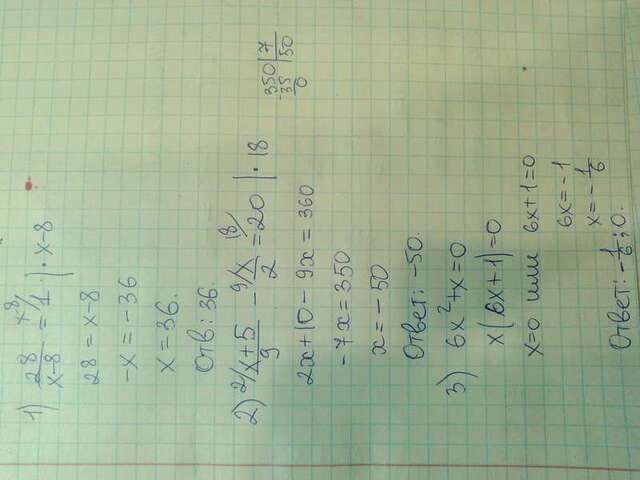 1) 28/x-8 = 1 | · x-8
28 = x-8
-x = -36
x = 36.
Отв: 36.
2) 2/ x+5/9 - 9/ x/2 = 20 18/ | · 18
2x+10-9x=360
-7x=350
x=-50
Ответ: -50.
350 | 7
-35 | 50
0
3) 6x²+x=0
x(6x+1)=0
x=0 или 6x+1=0
6x=-1
x=-1/6
Ответ: -1/6; 0.